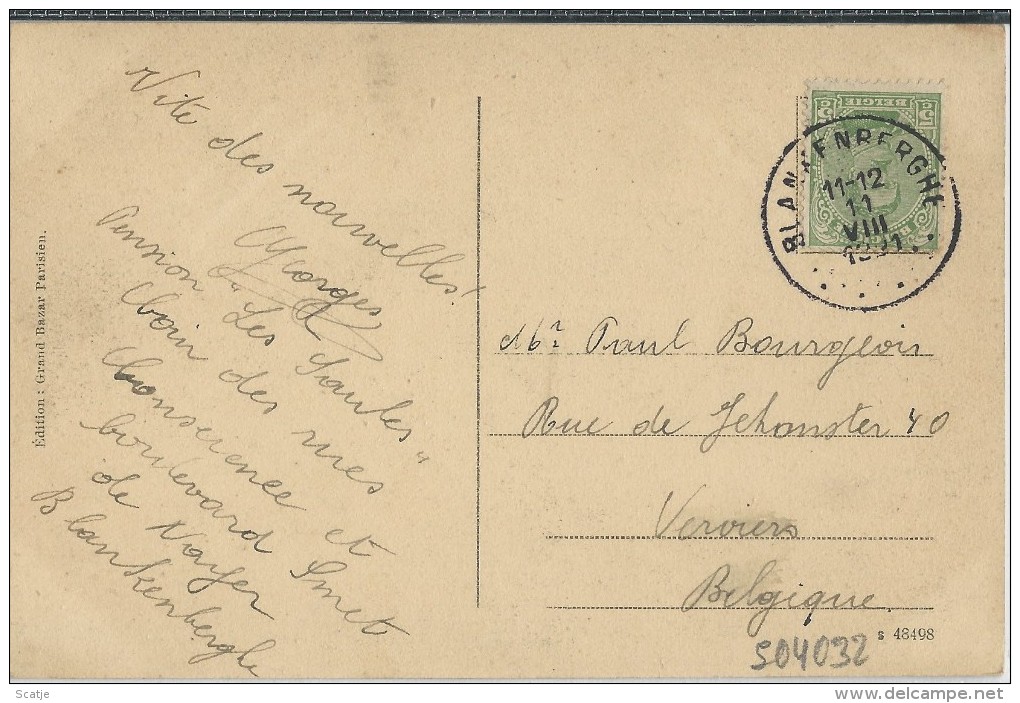 Vite des nouvelles!
Georges
Pension "Les Saules"
Coin des rues
Conscience et
boulevard Smet
de Nayer
Blankenberghe
Édition: Grand Bazar Parisien.
5 BELGIE 5
BELGI
BLANKENBERGHE
11-12
11
VIII
Mr Paul Bourgeois
Rue de Jehanster 40
Verviers
Belgique.
S 48498
504032
Scatje
delcampe.net